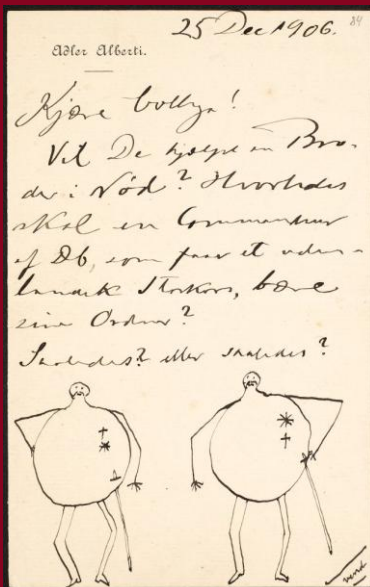 25 Dec 1906.
84
Adler Alberti.
Kjære Collega!
Vil De hjælpe en Bro-
der i Nød? Hvorledes
skal en Commandeur
af Db, som faar et uden-
landsk Storkors, bære
sine Ordner?
Saaledes? eller saaledes?
vend